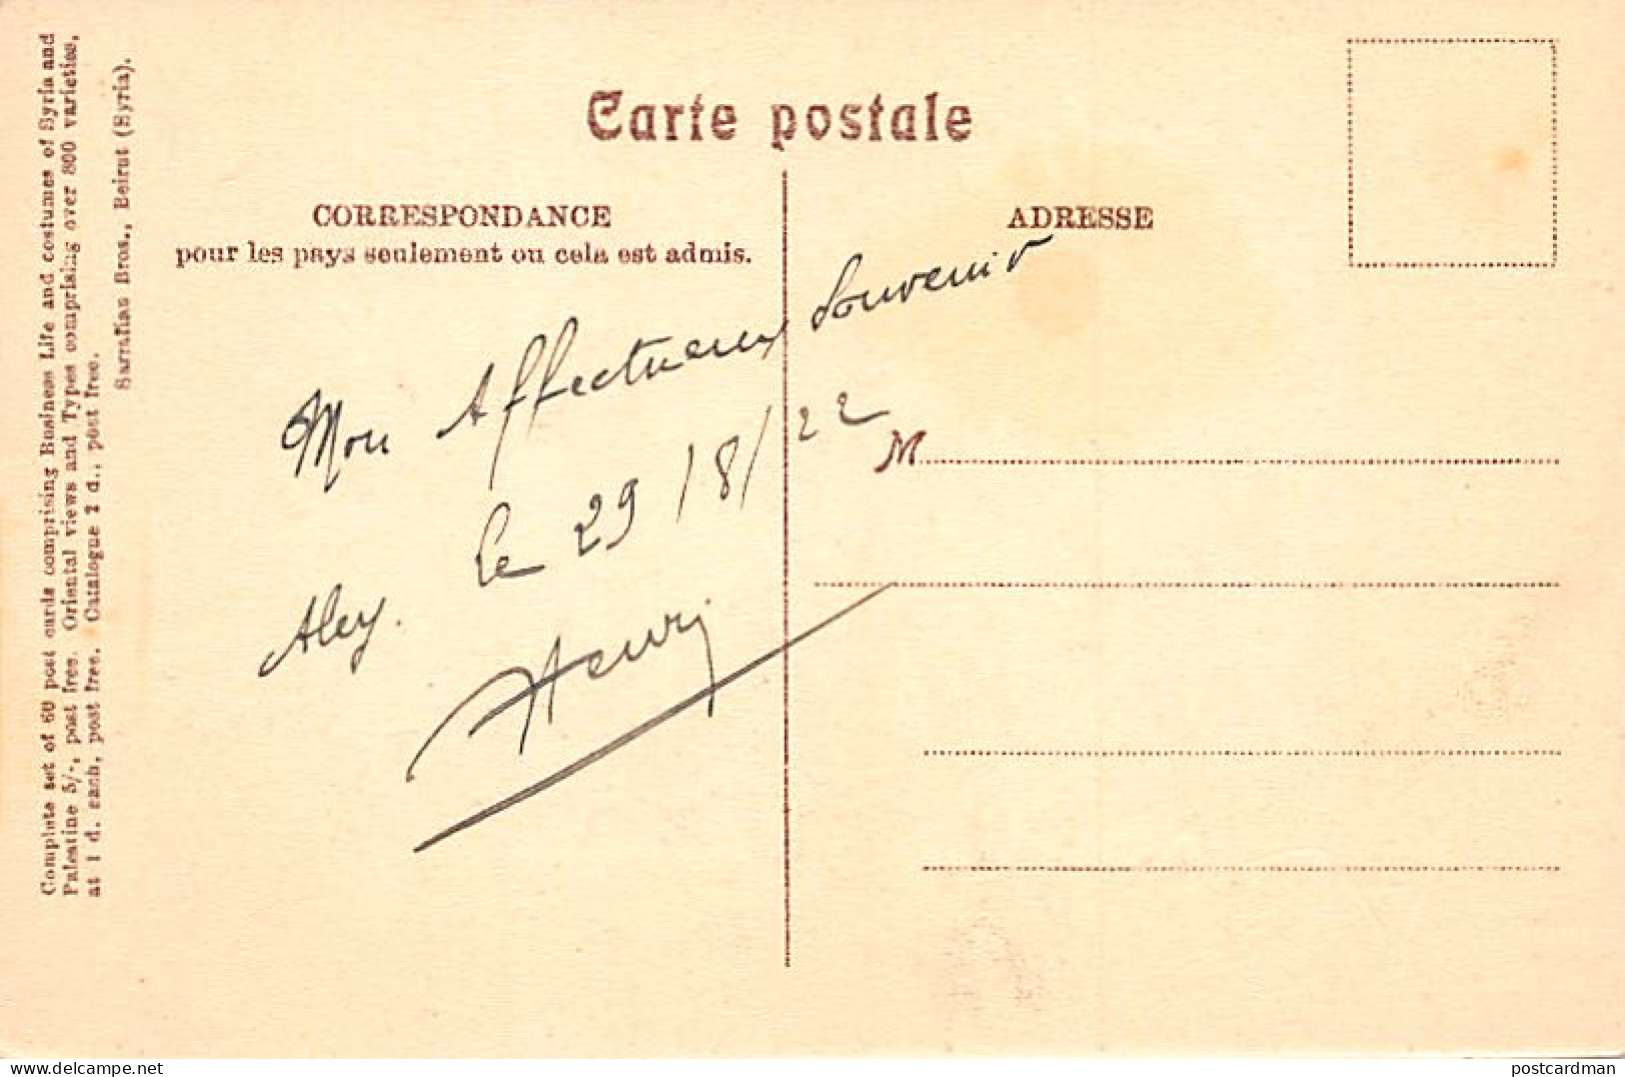 Complete set of 60 post cards comprising Business Life and costumes of Syria and
Palestine 5/-, post free. Oriental views and Types comprising over 800 varieties,
at 1 d. each, post free. Catalogue 2 d., post free.
Sarrafian Bros., Beirut (Syria).
Carte postale
CORRESPONDANCE
pour les pays seulement ou cela est admis.
ADRESSE
Mon Affectueux Souvenir
Aley. le 29/8/22
Henri
M
delcampe.net
postcardman